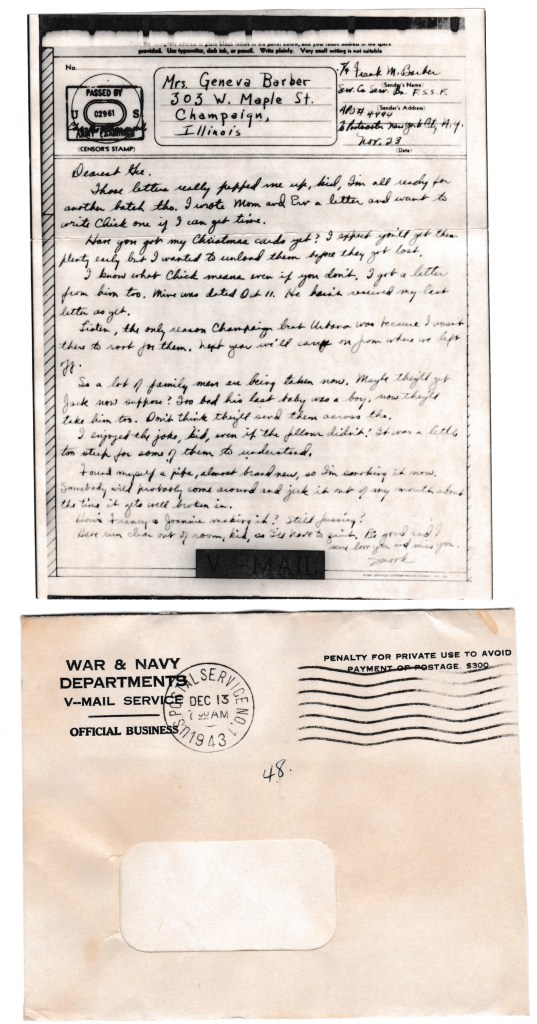 provided. Use typewriter, dark ink, or pencil. Write plainly. Very small writing is not suitable
No.
Mrs. Geneva Barber
303 W. Maple St.
Champaign,
Illinois
PASSED BY
U 02961 S
ARMY EXAMINER
(CENSOR'S STAMP)
T/4 Frank M. Barber
(Sender's Name)
Serv. Co. Serv. Bn. F.S.S.F.
(Sender's Address)
APO # 4994
Postmaster New York City N.Y.
Nov. 23
(Date)
Dearest
Those letters really pepped me up, kid, I'm all ready for
another batch tho. I wrote Mom and Erv a letter and want to
write Chick one if I can get time.
Have you got my Christmas cards yet? I expect you'll get them
plenty early but I wanted to unload them before they got lost.
I know what Chick means even if you don't. I got a letter
from him too. Mine was dated Oct 11. He hasn't received my last
letter as yet.
Listen, the only reason Champaign beat Urbana was because I wasn't
there to root for them. Next year we'll carry on from where we left
off.
So a lot of family men are being taken now. Maybe they'll get
Jack now suppose? Too bad his last baby was a boy, now they'll
take him too. Don't think they'll send them across tho.
I enjoyed the joke, kid, even if the fellows didn't. It was a little
too steep for some of them to understand.
Found myself a pipe, almost brand new, so I'm smoking it now.
Somebody will probably come around and jerk it out of my mouth about
the time it gets well broken in.
How's & Joannie making it? Still fussing?
Have run clear out of room, kid, so I'll have to quit. Be good and I
sure love you and miss you.
V - MAIL
WAR & NAVY
DEPARTMENTS
V--MAIL SERVICE
OFFICIAL BUSINESS
U.S. POSTAL SERVICE NO. 1
DEC 13
7 AM
1943
PENALTY FOR PRIVATE USE TO AVOID
PAYMENT OF POSTAGE. $300
48.